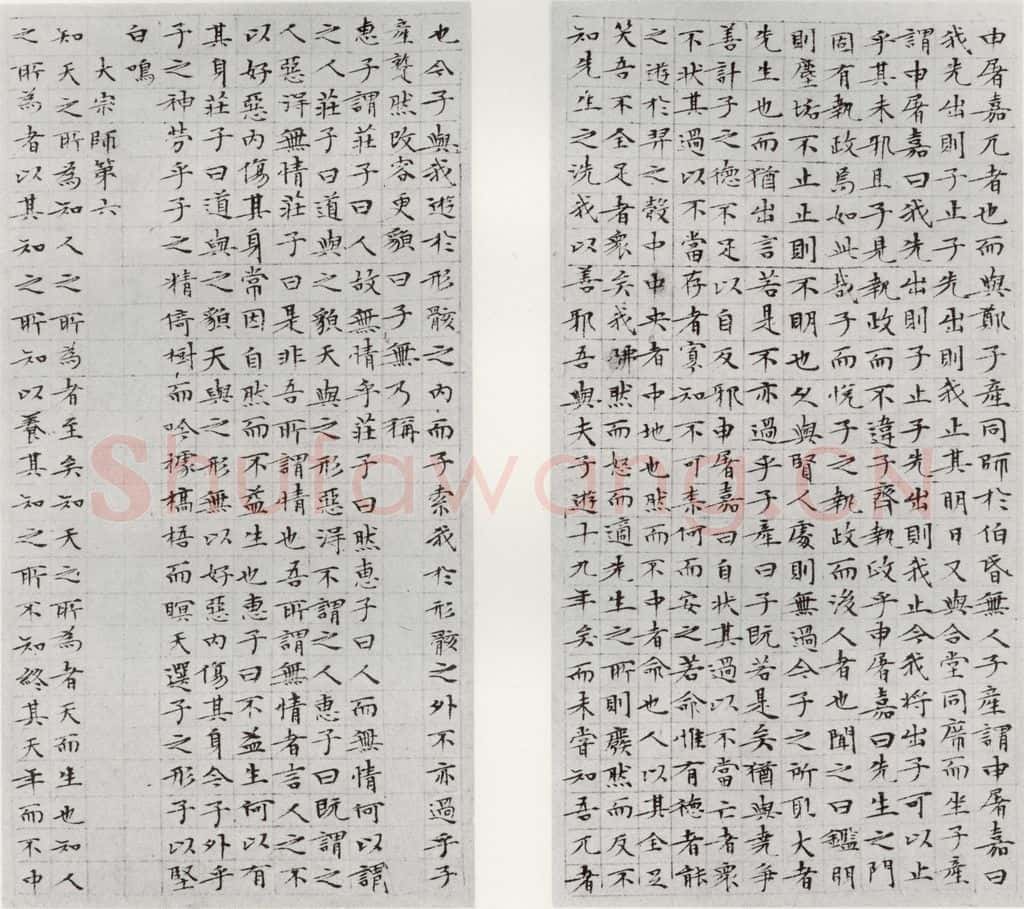 申屠嘉兀者也而與鄭子產同師於伯昏無人子產謂申屠嘉曰
我先出則子止子先出則我止其明日又與合堂同席而坐子產
謂申屠嘉曰我先出則子止子先出則我止今我將出子可以止
乎其未邪且子見執政而不違子齊執政乎申屠嘉曰先生之門
固有執政焉如此哉子而悅子之執政而後人者也聞之曰鑑明
則塵垢不止止則不明也久與賢人處則無過今子之所取大者
先生也而猶出言若是不亦過乎子產曰子既若是矣猶與堯爭
善計子之德不足以自反邪申屠嘉曰自狀其過以不當亡者衆
不狀其過以不當存者寡知不可柰何而安之若命惟有德者能
之遊於羿之彀中中央者中地也然而不中者命也人以其全足
笑吾不全足者衆矣我怫然而怒而適先生之所則廢然而反不
知先生之洗我以善邪吾與夫子遊十九年矣而未嘗知吾兀者
也今子與我遊於形骸之內而子索我於形骸之外不亦過乎子
產蹵然改容更貌曰子無乃稱
惠子謂莊子曰人故無情乎莊子曰然惠子曰人而無情何以謂
之人莊子曰道與之貌天與之形惡得不謂之人惠子曰既謂之
人惡得無情莊子曰是非吾所謂情也吾所謂無情者言人之不
以好惡內傷其身常因自然而不益生也惠子曰不益生何以有
其身莊子曰道與之貌天與之形無以好惡內傷其身今子外乎
子之神勞乎子之精倚樹而吟據槁梧而瞑天選子之形子以堅
白鳴
大宗師第六
知天之所為知人之所為者至矣知天之所為者天而生也知人
之所為者以其知之所知以養其知之所不知終其天年而不中
Shufawang.CN